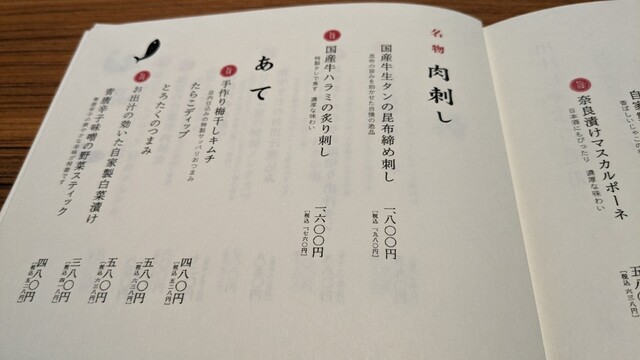 自家
奈良漬けマスカルポーネ
日本酒にもぴったり 濃厚な味わい
五八〇円
名物 肉刺し
国産牛生タンの昆布締め刺し
昆布の旨みを効かせた自慢の逸品
一、八〇〇円
［税込 一、九八〇円］
国産牛ハラミの炙り刺し
特製タレで食す 濃厚な味わい
一、六〇〇円
［税込 一、七六〇円］
あて
手作り梅干しキムチ
四八〇円
［税込 五二八円］
たらこディップ
五八〇円
［税込 六三八円］
とろたくのつまみ
五八〇円
［税込 六三八円］
お出汁の効いた自家製白菜漬け
三八〇円
［税込 四一八円］
青唐辛子味噌の野菜スティック
四八〇円
［税込 五二八円］